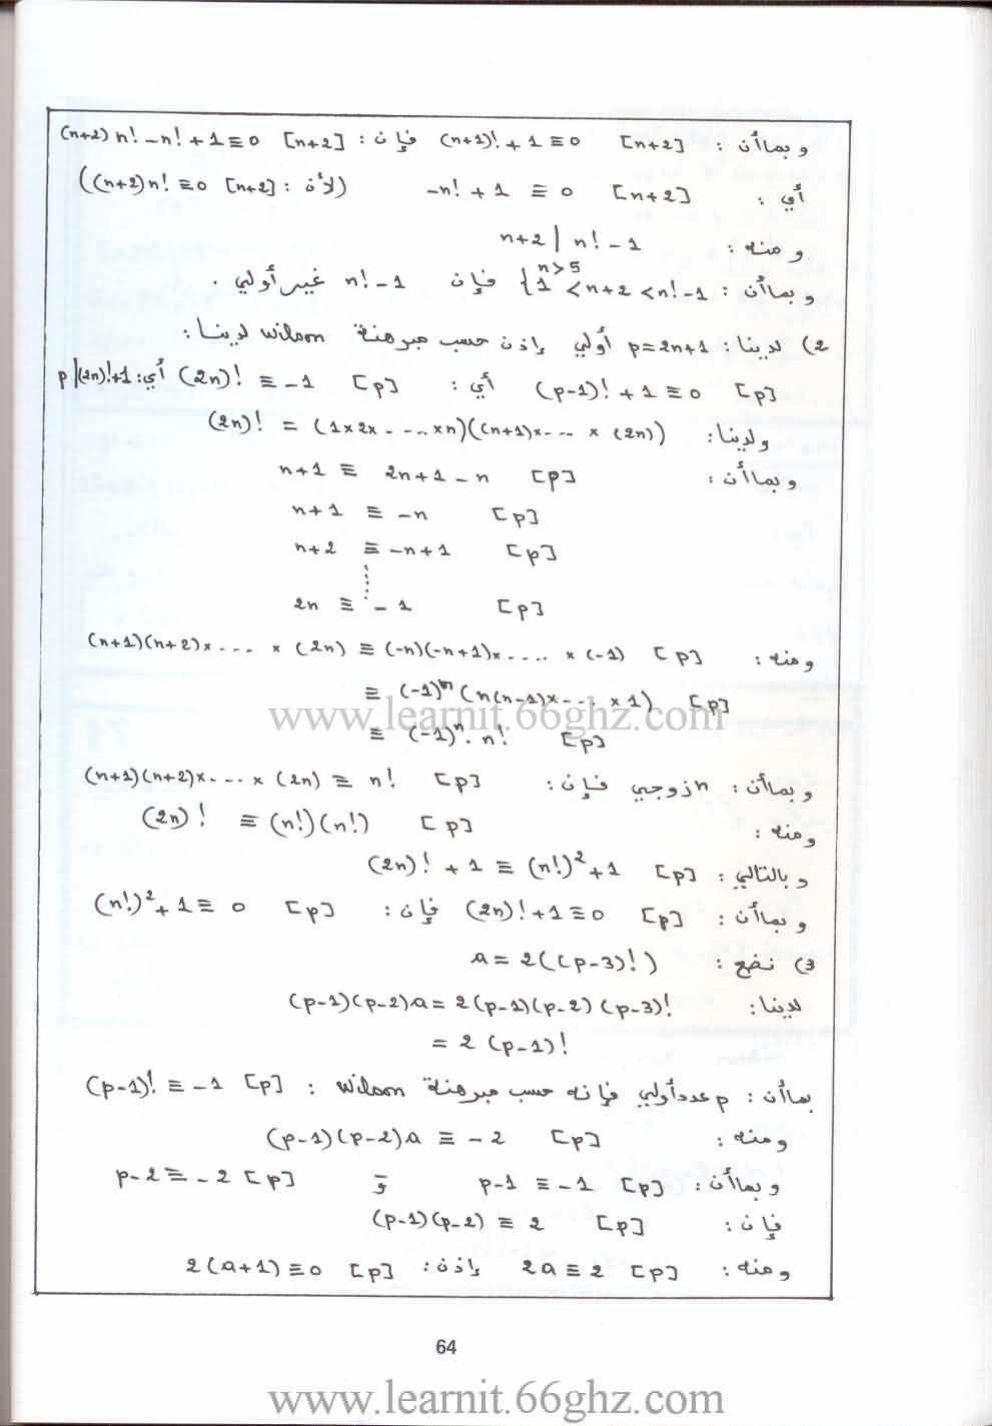 وبما أن : (n+1)!+1≡0 [n+2] فإن : (n+2)n!-n!+1≡0 [n+2]
أي : -n!+1 ≡ 0 [n+2] (لأن : (n+2)n!≡0 [n+2])
ومنه : n+2 | n!-1
وبما أن : { n>5 1<n+2<n!-1 فإن n!-1 غير أولي .
2) لدينا : p=2n+1 أولي إذن حسب مبرهنة wilson لدينا :
(p-1)!+1≡0 [p] أي : (2n)! ≡ -1 [p] أي : p|(2n)!+1
ولدينا : (2n)! = (1x2x-...xn)((n+1)x-... x (2n))
وبما أن : n+1 ≡ 2n+1-n [p]
n+1 ≡ -n [p]
n+2 ≡ -n+1 [p]
⋮
2n ≡ -1 [p]
ومنه : (n+1)(n+2)x.... x (2n) ≡ (-n)(-n+1)x.... x (-1) [p]
≡ (-1)ⁿ (n(n-1)x-... x 1) [p]
www.learnit.66ghz.com
≡ (-1)ⁿ. n! [p]
وبما أن : n زوجي فإن : (n+1)(n+2)x-...x (2n) ≡ n! [p]
ومنه : (2n)! ≡ (n!)(n!) [p]
وبالتالي : (2n)! + 1 ≡ (n!)²+1 [p]
وبما أن : (2n)!+1≡0 [p] فإن : (n!)²+1≡0 [p]
3) نضع : a = 2((p-3)!)
لدينا : (p-1)(p-2)a = 2(p-1)(p-2)(p-3)!
= 2 (p-1)!
بما أن : p عدد أولي فإنه حسب مبرهنة wilson : (p-1)! ≡ -1 [p]
ومنه : (p-1)(p-2)a ≡ -2 [p]
وبما أن : p-1 ≡ -1 [p] و p-2 ≡ -2 [p]
فإن : (p-1)(p-2) ≡ 2 [p]
ومنه : 2a ≡ 2 [p] إذن : 2(a+1)≡0 [p]
64
www.learnit.66ghz.com